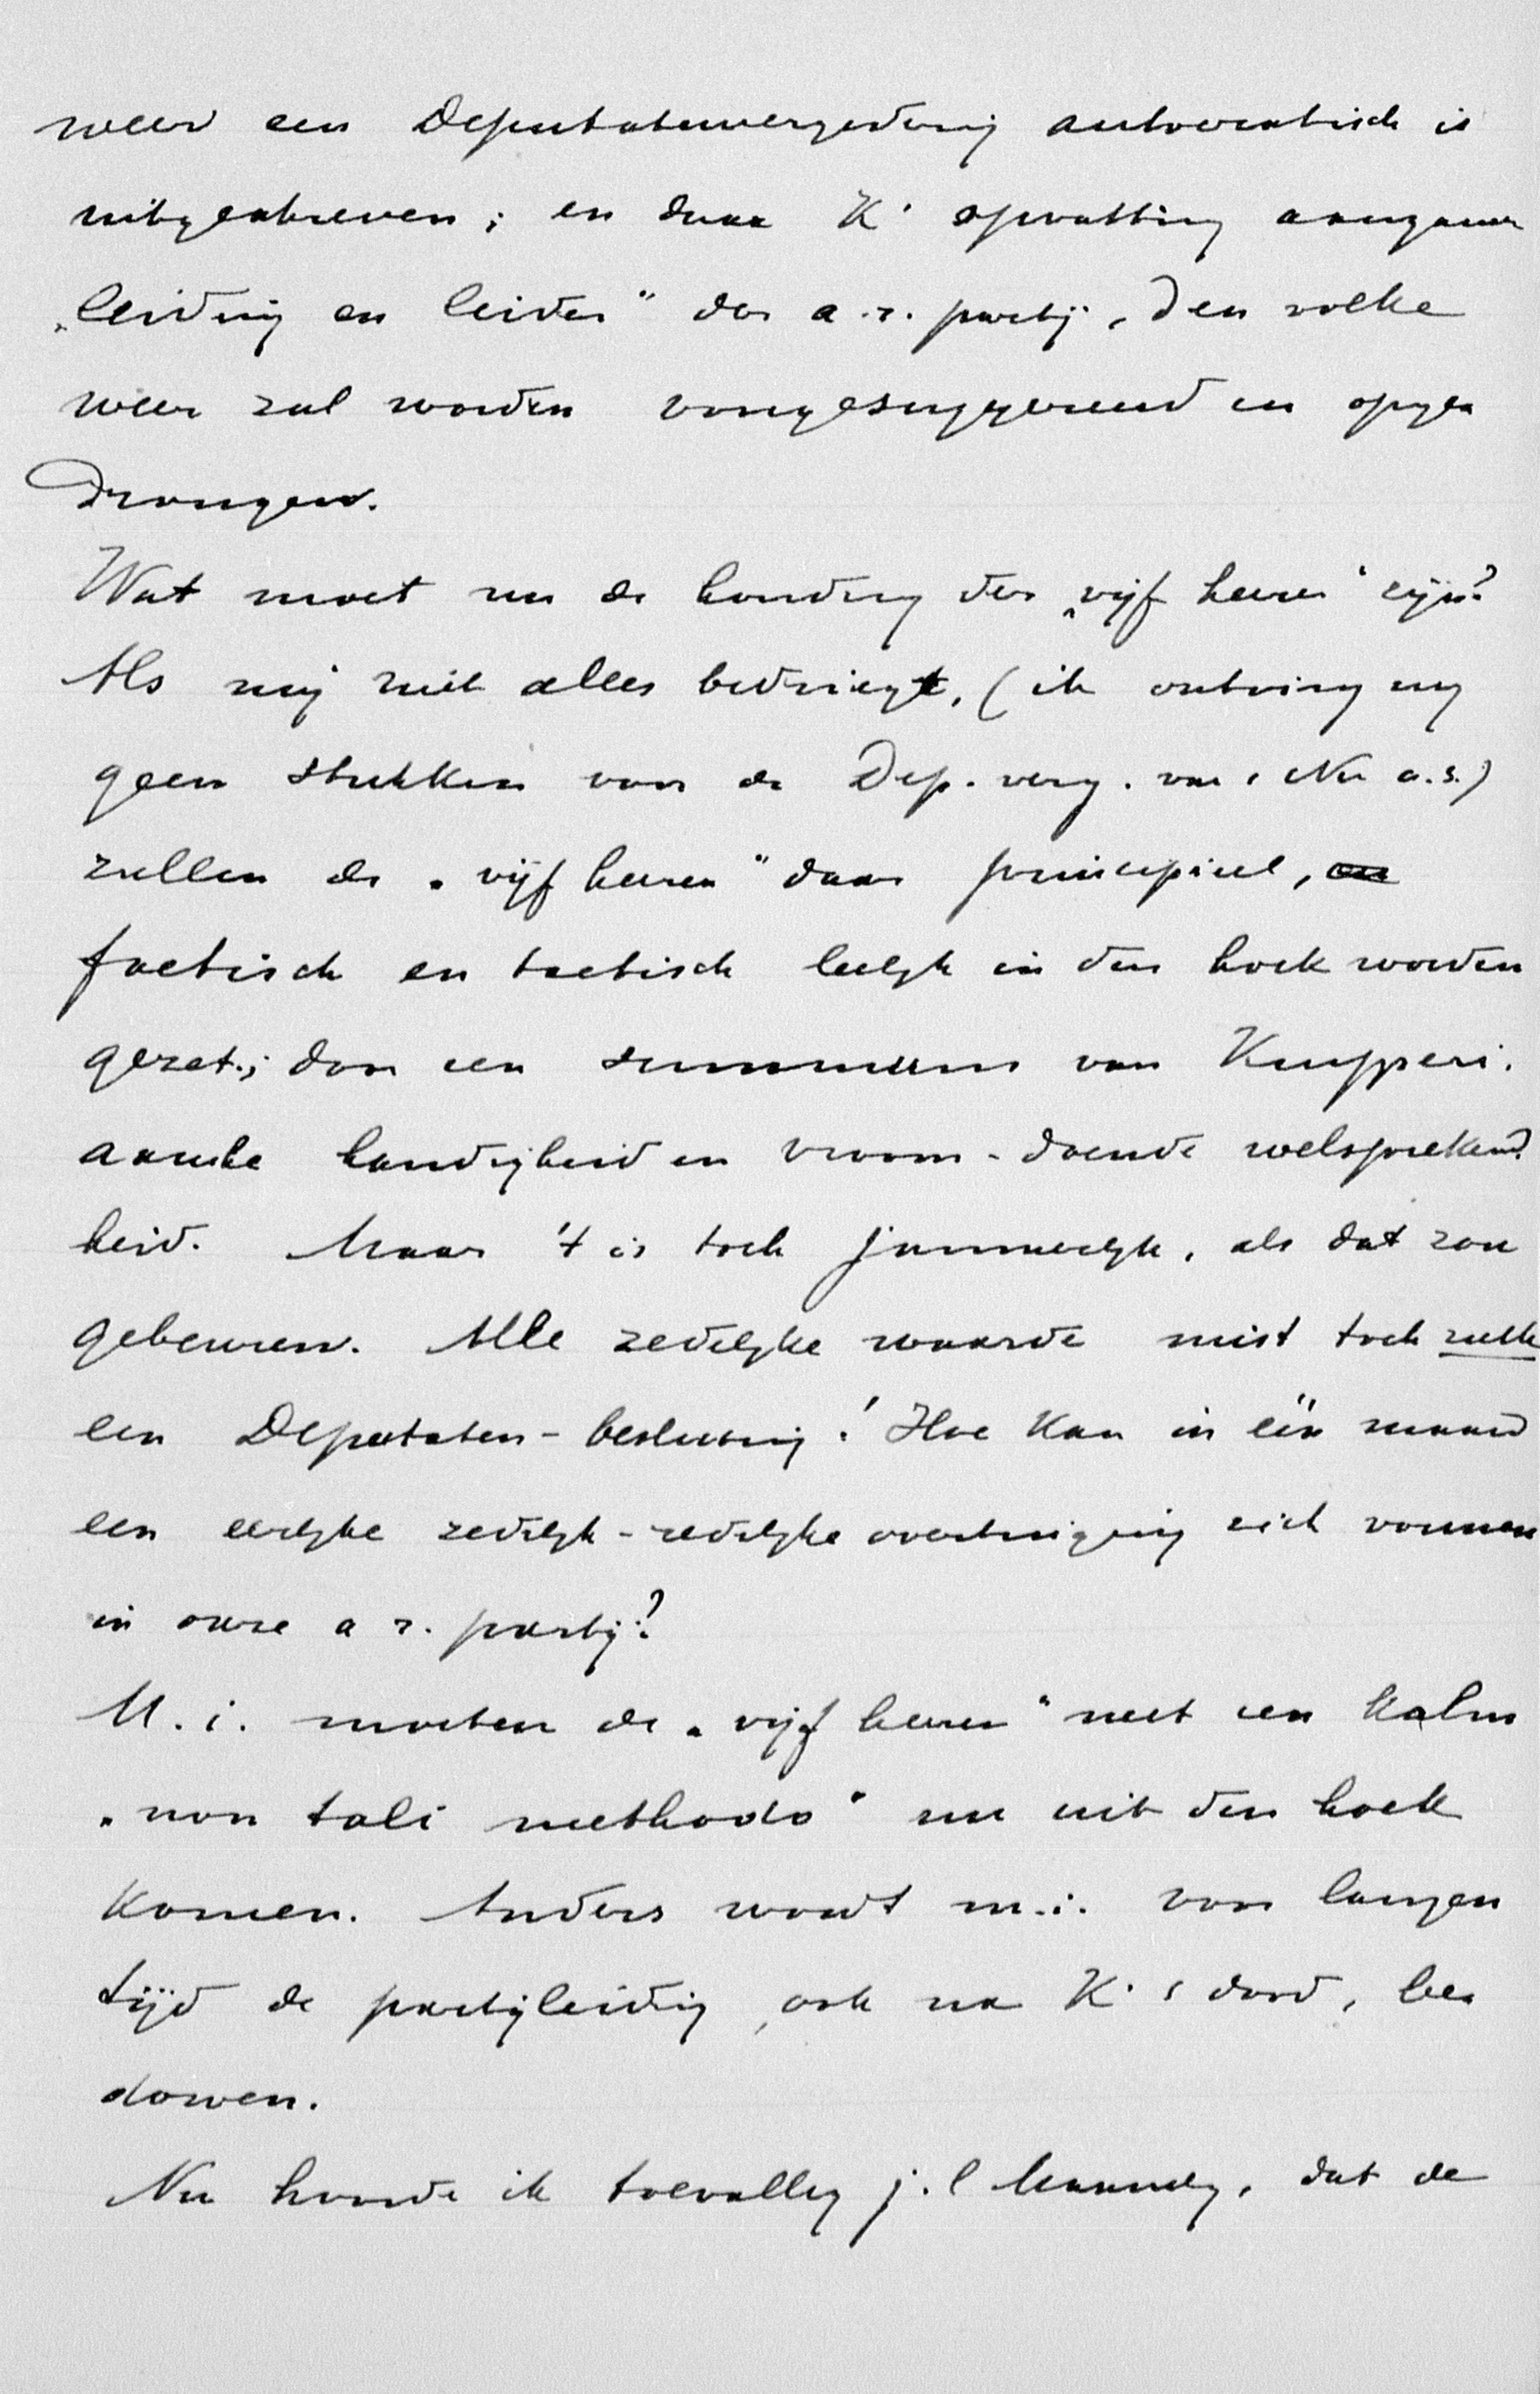 weer een Deputatenvergadering autocratisch is
uitgeschreven; en daar K' opvatting aangaan
„leiding en leider" der a.r. partij, den volke
weer zal worden voorgesuggereerd en opge
drongen.
Wat moet nu de houding der „vijf heeren" zijn?
Als mij niet alles bedriegt, (ik ontving nog
geen stukken voor de Dep. verg. van Nov a.s.)
zullen de „vijf heeren" daar principieel,
factisch en tactisch leelijk in den hoek worden
gezet; door een summum van Kuyperi.
aansche handigheid en vroom-doende welsprekend
heid. Maar 't is toch jammerlijk, als dat zou
gebeuren. Alle zedelijke waarde mist toch zulk
een Deputaten-beslissing! Hoe kan in één maand
een eerlijke zedelijk-redelijke overtuiging zich vormen
in onze a r. partij?
M.i. moeten de „vijf heeren" met een kalm
„non tali methodo" nu uit den hoek
komen. Anders wordt m.i. voor langen
tijd de partijleiding, ook na K's dood, be
dorven.
Nu hoorde ik toevallig j.l Maandag, dat de